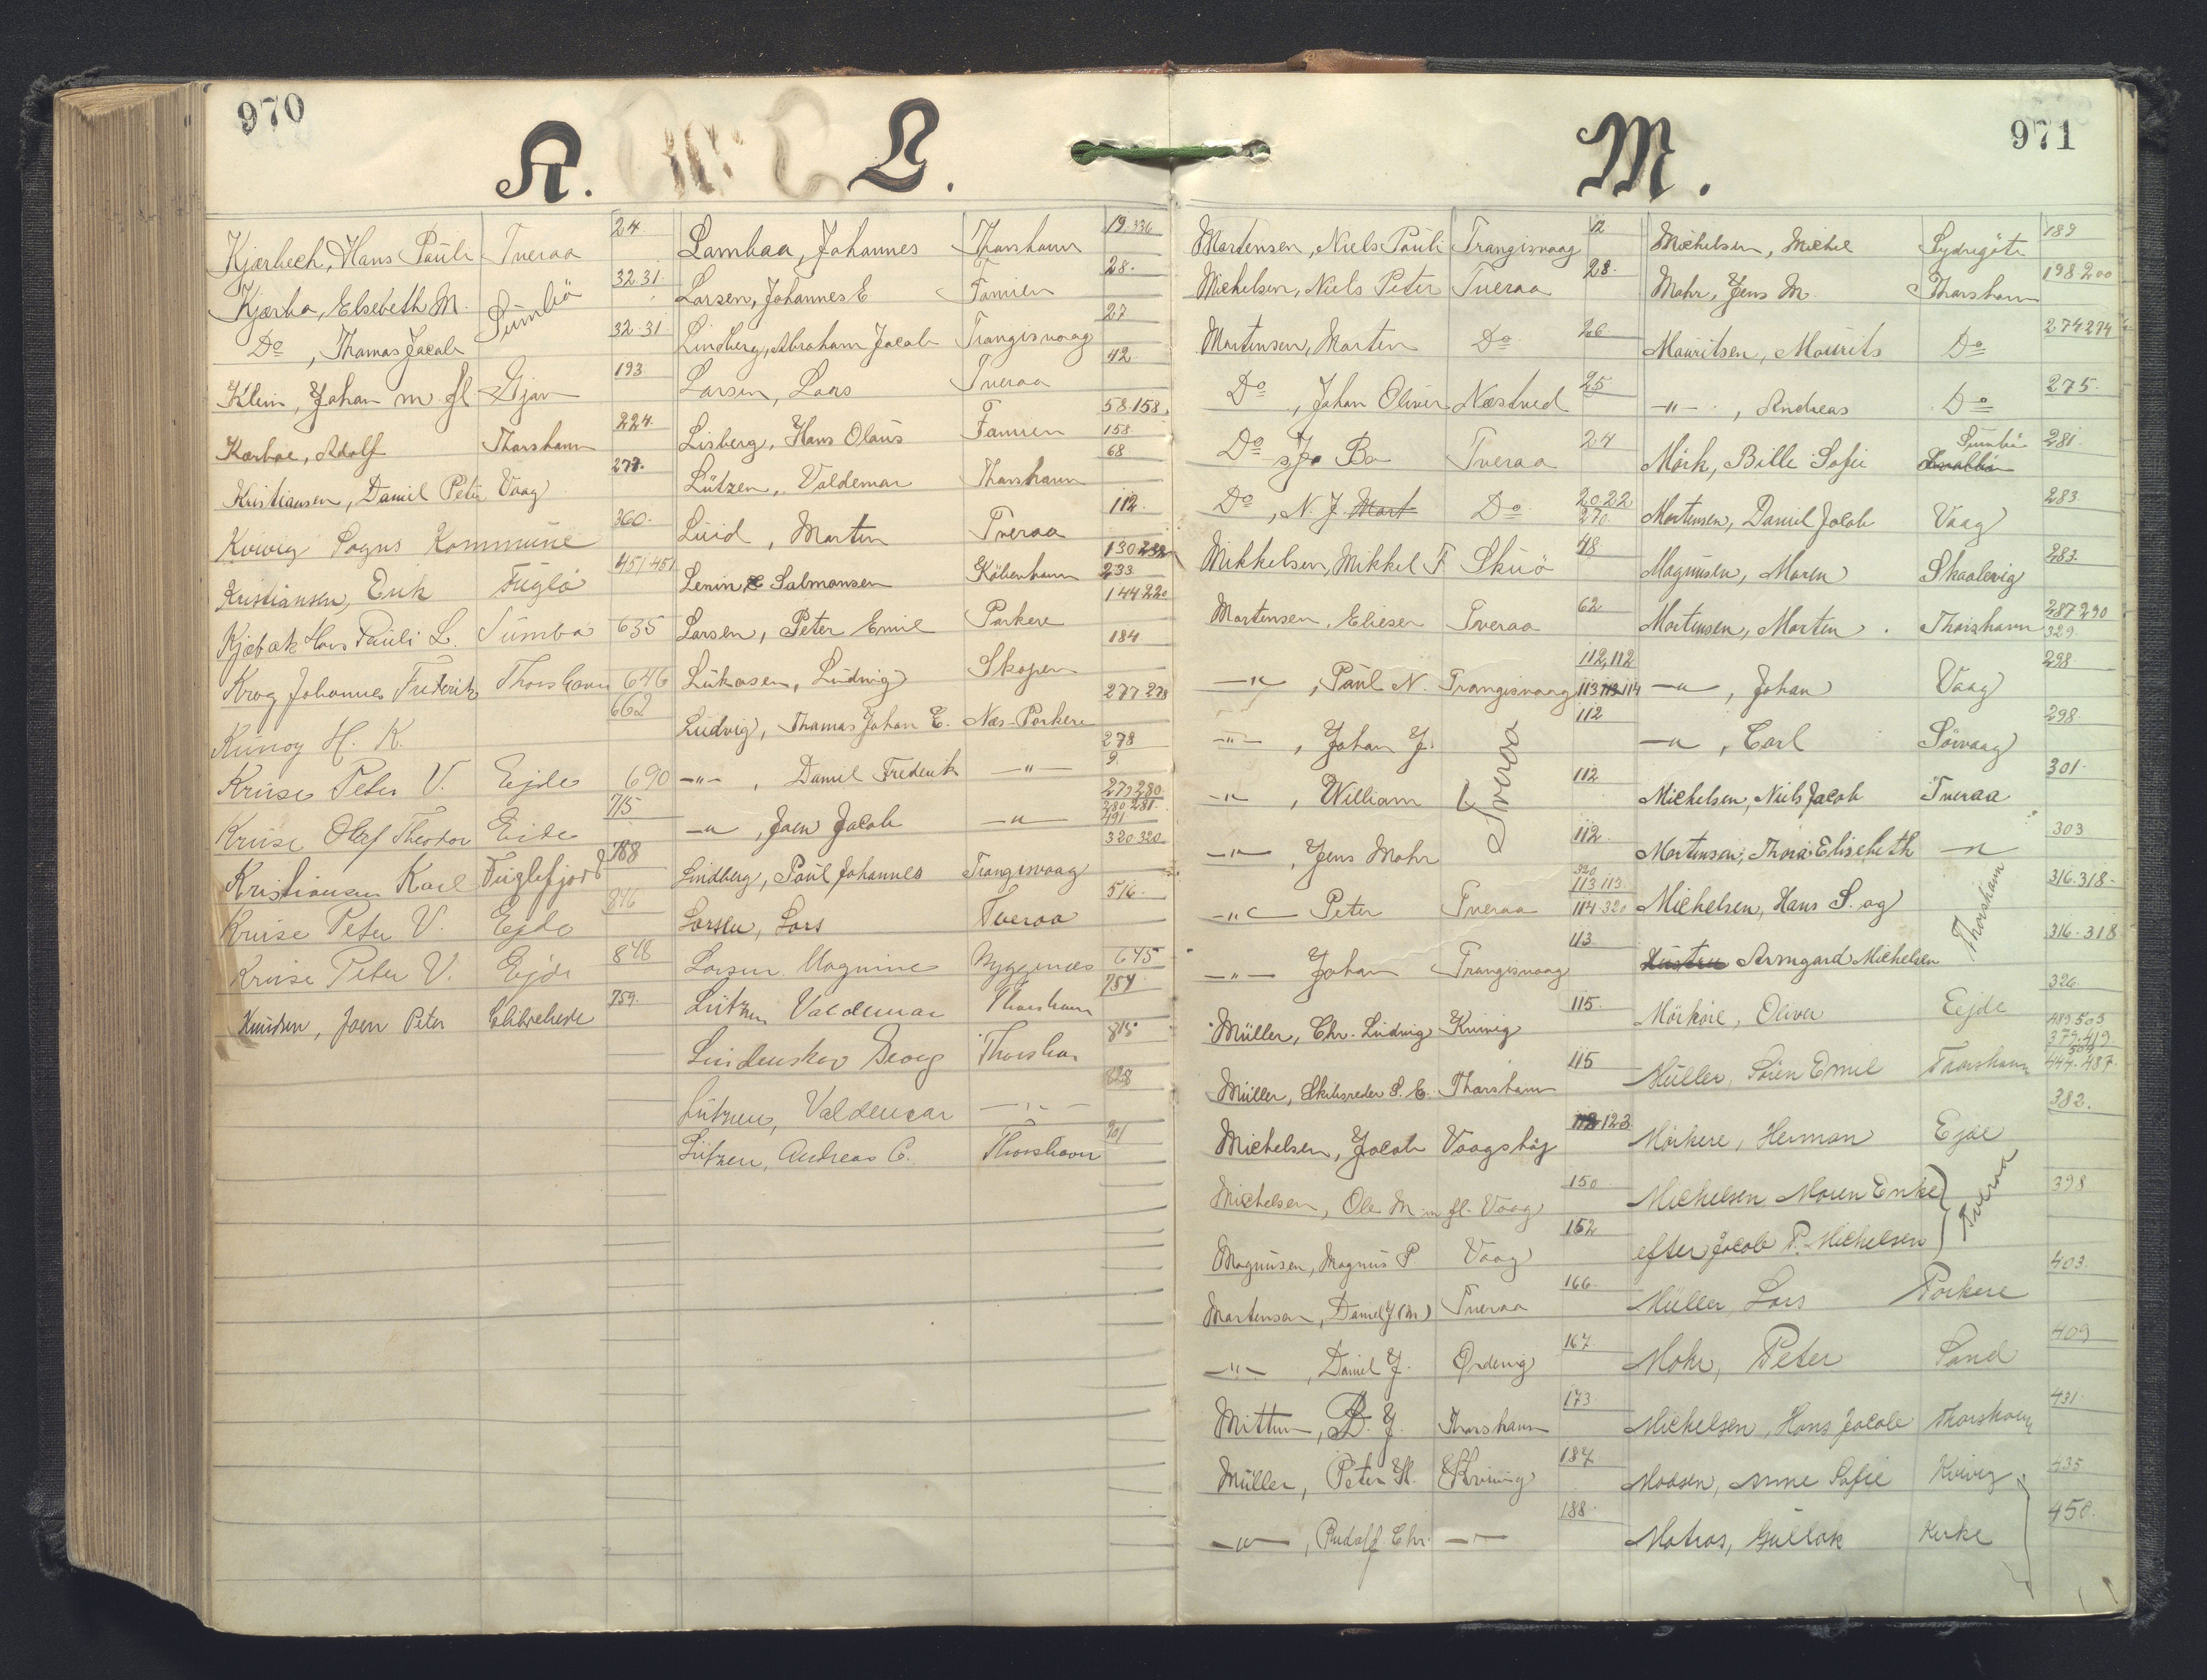 970
K. L.
Kjærbech, Hans Pauli Tveraa 24.
Kjærbo, Elsebeth M. Sumbö 32.31.
Do , Thomas Jacob 32.31
Klein, Johan m. fl Gjov 193
Kærboe, Adolf Thorshavn 224.
Kristiansen, Daniel Peter Vaag 277.
Kvivig Sogns Kommune 360.
Kristiansen, Erik Fuglö 451 451
Kjøbæk Hans Pauli L. Sumbö 635
Krog Johannes Frederik Thorshavn 646
Kunoy H. K. 662
Kruse Peter V. Ejde 690
Kruse Olaf Theodor Eide 715
Kristiansen Karl Fuglefjord 788
Kruse Peter V. Ejde 846
Kruse Peter V. Ejde 848
Knudsen, Joen Peter 759.
Lambaa, Johannes Thorshavn 19.336
Larsen, Johannes E Famien 28.
Lindberg, Abraham Jacob Trangisvaag 27
Larsen, Lars Tveraa 42
Lisberg, Hans Olaus Famien 58.158. 158
Lützen, Valdemar Thorshavn 68
Luid, Morten Tveraa 112.
Lenin & Salmonsen Köbenhavn 130 232 233
Larsen, Peter Emil Porkere 144 220
Lukasen, Ludvig Skopen 184
Ludvig, Thomas Johan E. Næs-Porkere 277 278
-"- , Daniel Frederik -"- 278 9.
-"- , Joen Jacob -"- 279 280. 280 281. 491
Lindberg, Poul Johannes Trangisvaag 320 320
Larsen, Lars Tveraa 516.
Larsen Magnine Nyggjenæs 645
Lützen Valdemar Thorshavn 754
Lindenskov Georg Thorshav 815
Lützen, Valdemar -"- 828
Lützen, Andreas C. Thorshavn 901
971
M.
Mortensen, Niels Pauli Trangisvaag 12
Michelsen, Niels Peter Tveraa 28.
Mortensen, Morten Do 26
Do , Johan Oliver Næstved 25
Do Tveraa 24
Do , N. J. Mort Do 20.22 270.
Mikkelsen, Mikkel F. Skuö 48
Mortensen, Elieser Tveraa 62
-"- , Paul N. Trangisvaag 112,112 113 113 114
-"- , Johan J. Tveraa 112
-"- , William 112
-"- , Jens Mohr 112.
-"- Peter Tveraa 320 113 113 114 320
-"- Johan Trangisvaag 113
Müller, Chr. Ludvig Kvivig 115.
Müller, Skibsreder S. E. Thorshavn 115
Michelsen, Jacob Vaagshöj 123
Michelsen, Ole M m fl. Vaag 150
Magnusen, Magnus P Vaag 152
Mortensen, Daniel J (M) Tveraa 166.
-"- , Daniel J. Ördevig 167
Mitten, D. J. Thorshavn 173.
Müller, Peter H. Kvivig 187
-"- , Rudolf Chr. -"- 188.
Michelsen, Michel Sydregöte 189
Mohr, Jens M. Thorshavn 198 200
Mauritsen, Maurits Do 274 274
-"- , Andreas Do 275.
Mörk, Bille Sofie Sumbö 281.
Mortensen, Daniel Jacob Vaag 283
Magnusen, Maren Skaalevig 283.
Mortensen, Morten Thorshavn 287 290 329.
-"- , Johan Vaag 298.
-"- , Carl Sörvaag 298
Michelsen, Niels Jacob Tveraa 301.
Mortensen, Thora Elisebeth -"- 303
Michelsen, Hans S. og Thorshavn 316.318-
Hustru Armgard Michelsen 316.318
Mörköre, Oliver Ejde 326.
Müller, Sören Emil Thorshavn 489 505 379.419 509 444.487.
Mörkere, Herman Ejde 382.
Michelsen Maren Enke Tveraa 398
efter Jacob P. Michelsen
Müller Lars Porkere 403.
Mohr, Peter Sand 409
Michelsen, Hans Jacob Thorshavn 431.
Moasen, Anne Sofie Kvivig 435
Matras, Gullak Kirke 450.